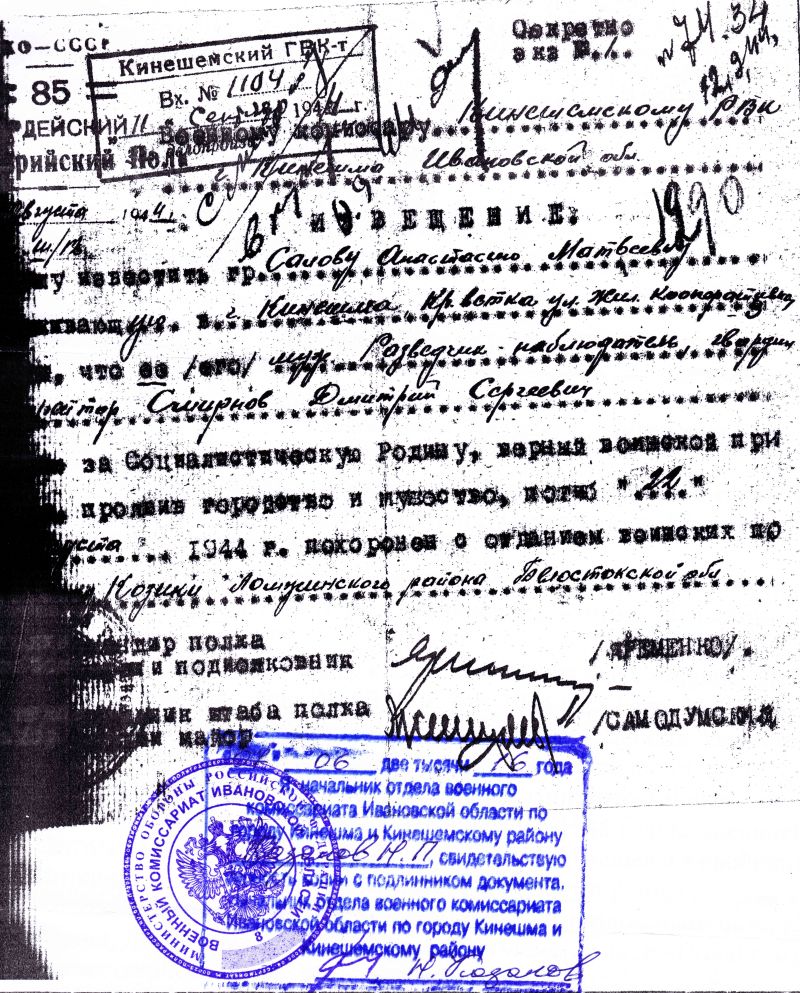 НКО-СССР
85
Кинешемский ГВК-т
Вх. № 1104
11 Сент 1944 г.
Секретно
экз №.1.
74.34
Военному комиссару Кинешемскому РВК
г. Кинешма Ивановской обл.
августа 1944 г.
ИЗВЕЩЕНИЕ.
1290
известить гр. Салову Анастасию Матвеевну
живающую в г. Кинешма Кр. ветка ул. Жил. кооперативная
что ее /его/ муж Разведчик-наблюдатель, гвардии
Смирнов Дмитрий Сергеевич
за Социалистическую Родину, верный воинской при
проявив геройство и мужество, погиб "22"
августа 1944 г. похоронен с отданием воинских по
Козики Ломжинского района Белостокской обл
полка
и подполковник /ЯРЕМЕНКО/.
штаба полка
майор /САМОДУМСКИЙ
06 две тысячи 16 года
начальник отдела военного
комиссариата Ивановской области по
городу Кинешма и Кинешемскому району
Казаков Н.П., свидетельствую
верность копии с подлинником документа.
Начальник отдела военного комиссариата
Ивановской области по городу Кинешма и
Кинешемскому району
Н. Казаков
МИНИСТЕРСТВО ОБОРОНЫ РОССИЙСКОЙ
ВОЕННЫЙ КОМИССАРИАТ ИВАНОВСКОЙ ОБЛАСТИ
8